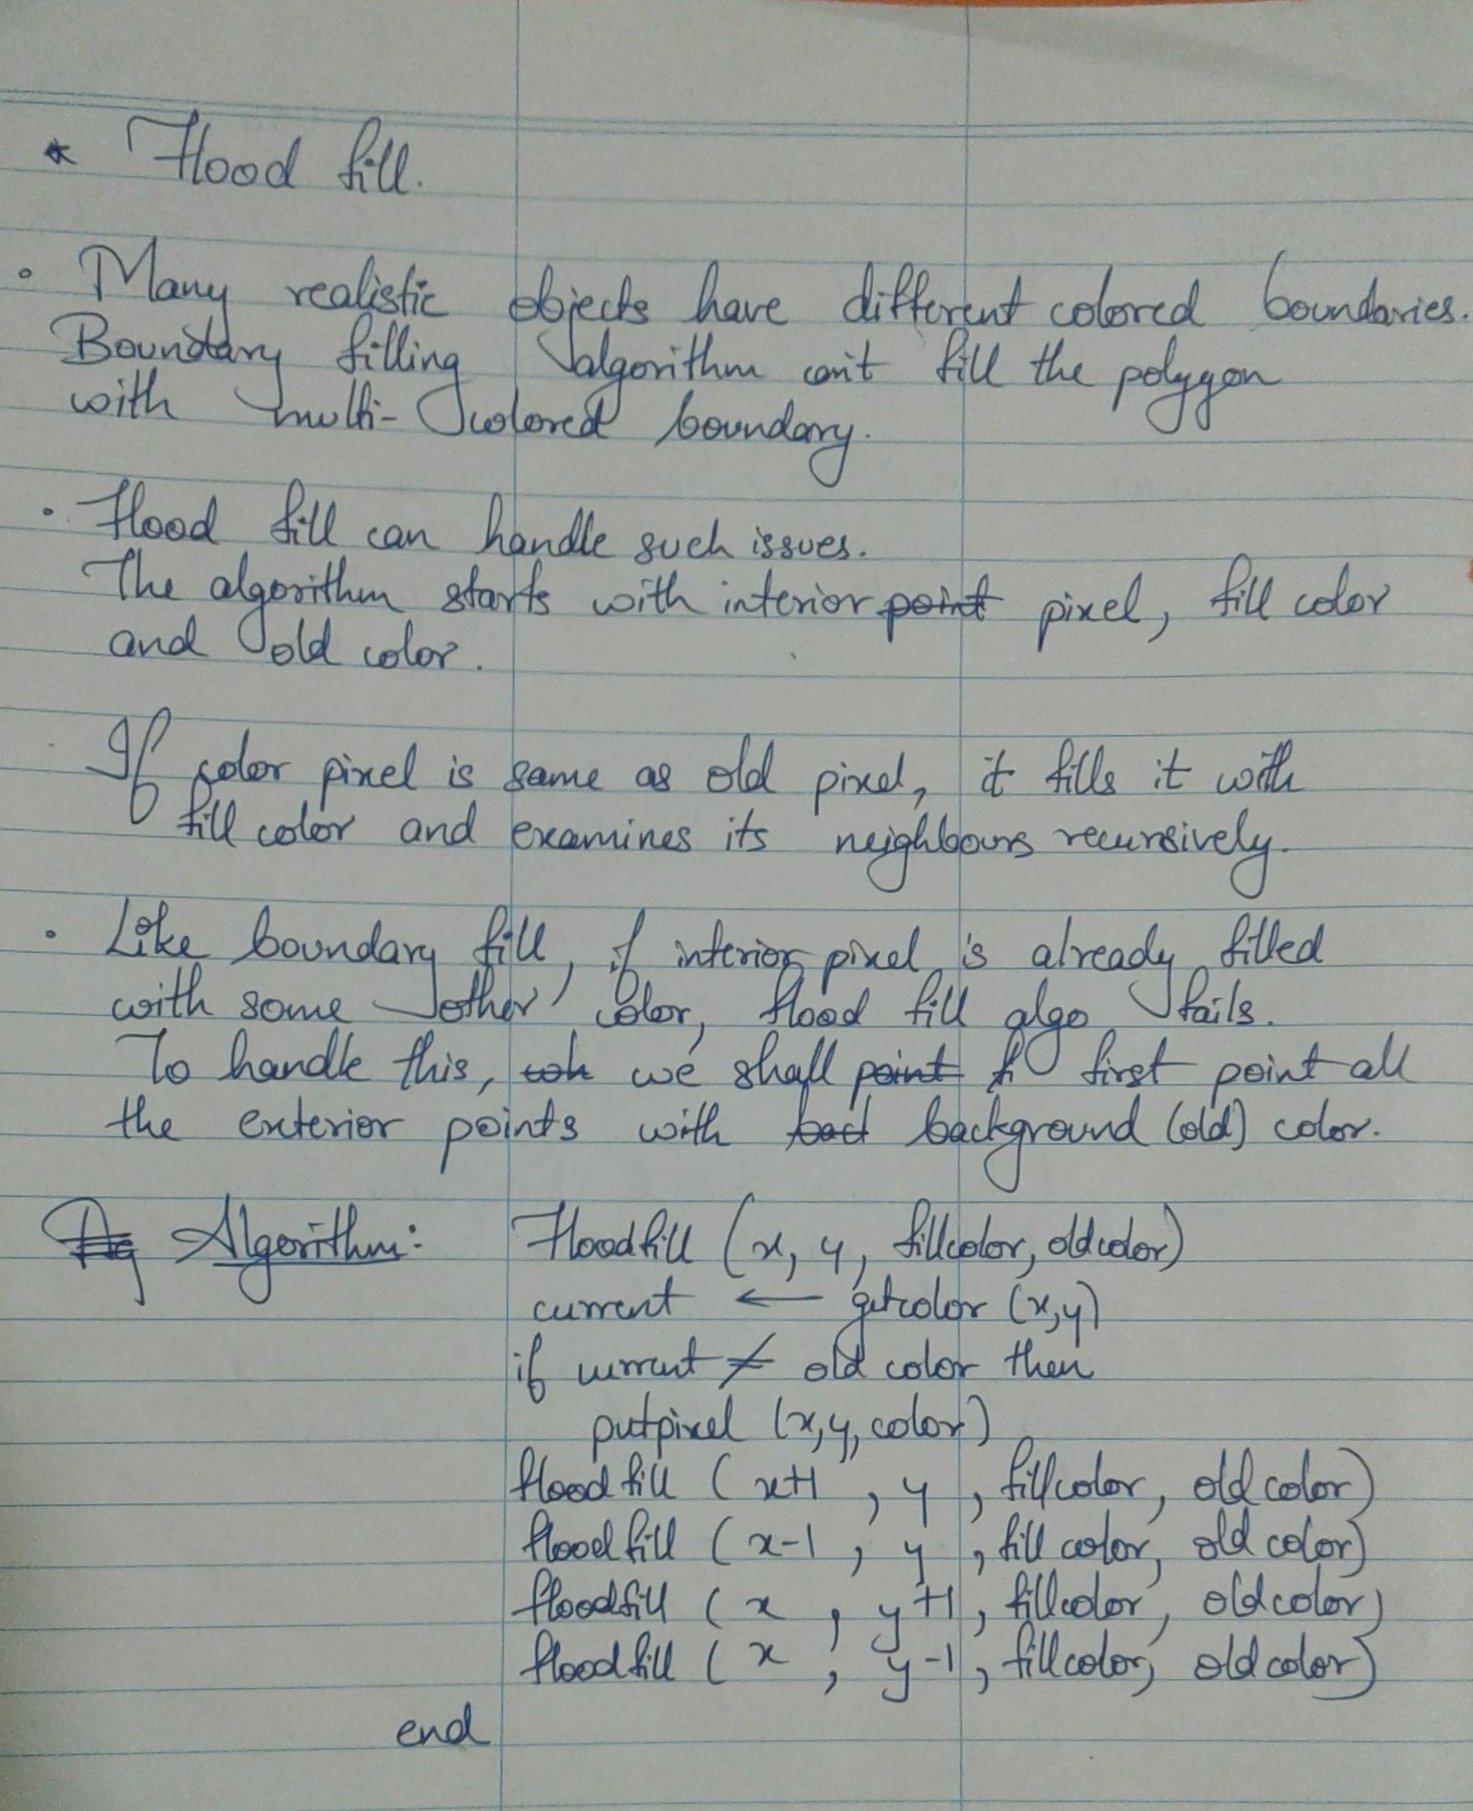 * Flood fill.
• Many realistic objects have different colored boundaries.
Boundary filling algorithm can't fill the polygon
with multi-colored boundary.
• Flood fill can handle such issues.
The algorithm starts with interior point pixel, fill color
and old color.
If color pixel is same as old pixel, it fills it with
fill color and examines its neighbours recursively.
• Like boundary fill, if interior pixel is already filled
with some other color, flood fill algo fails.
To handle this, we shall point first point all
the exterior points with background (old) color.
Algorithm: Floodfill (x, y, fillcolor, oldcolor)
current ← getcolor (x,y)
if current ≠ old color then
putpixel (x,y,color)
floodfill (x+1, y, fillcolor, old color)
floodfill (x-1, y, fill color, old color)
floodfill (x, y+1, fillcolor, oldcolor)
floodfill (x, y-1, fillcolor, oldcolor)
end